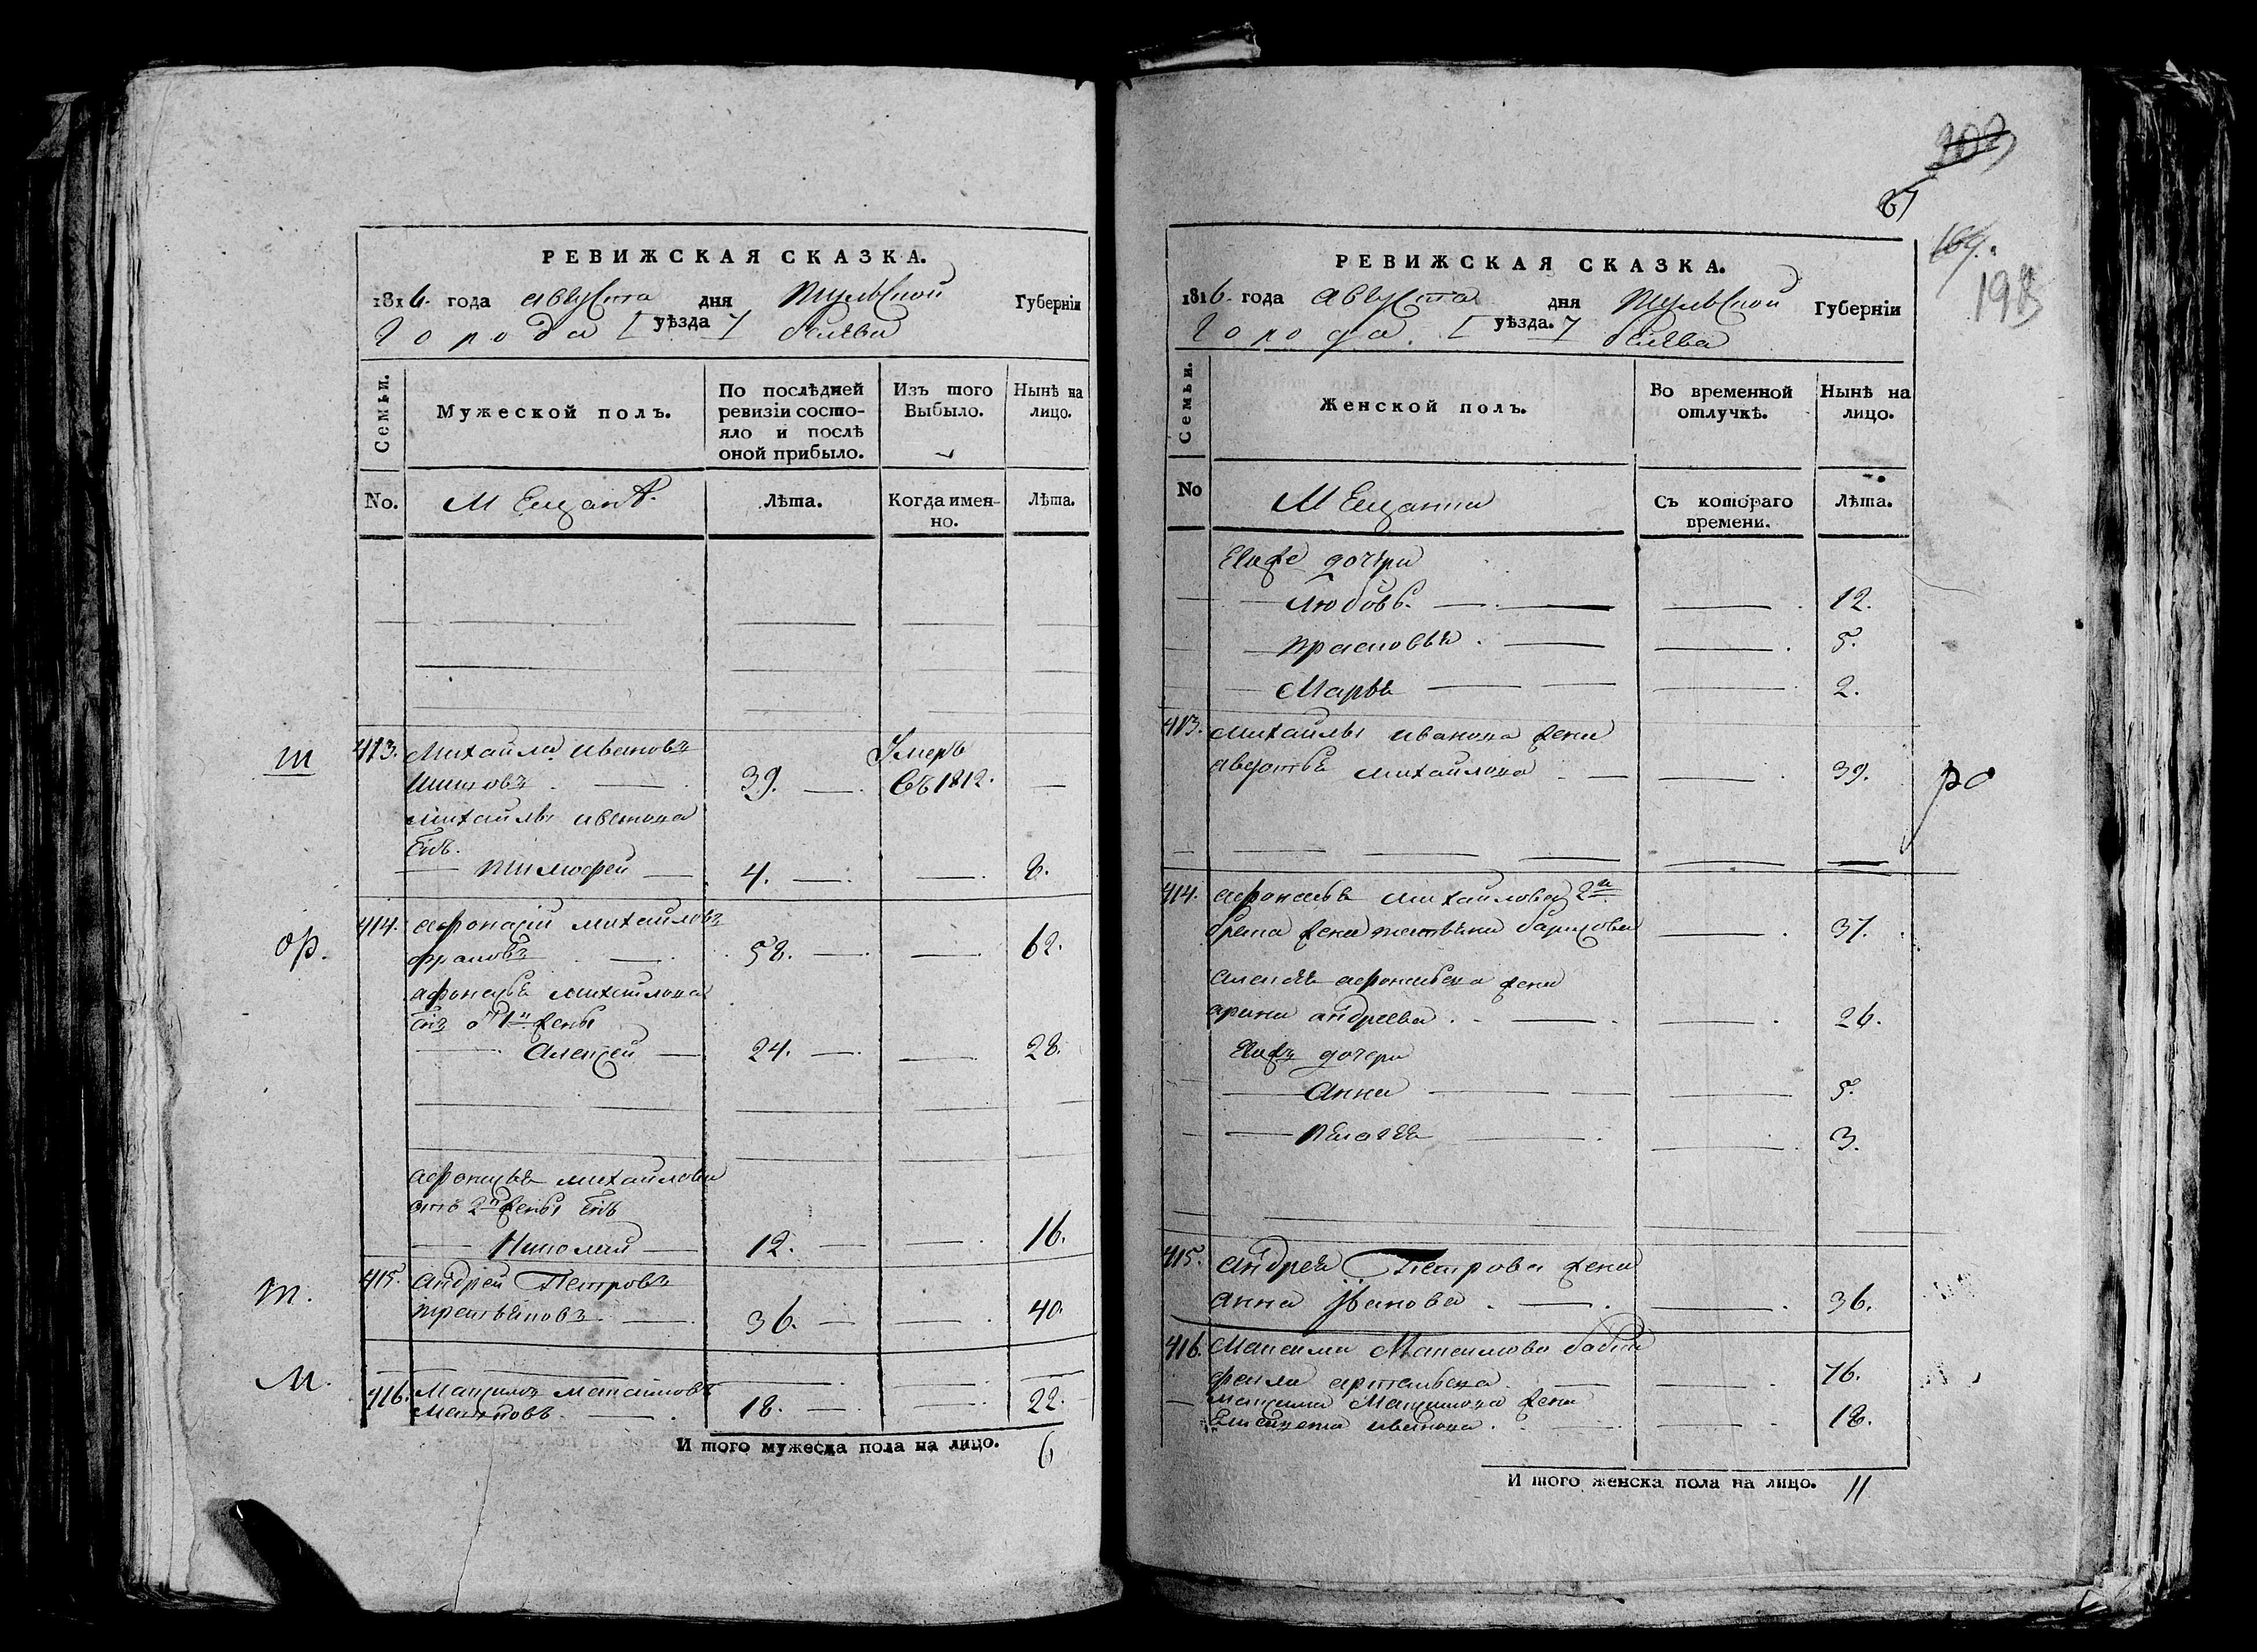 РЕВИЖСКАЯ СКАЗКА.
1816. года августа дня Тульской Губерніи
Города [уѣзда] Белева
Семьи.
Мужеской полъ.
По послѣдней ревизіи состояло и послѣ оной прибыло.
Изъ того Выбыло.
Нынѣ на лицо.
No.
Мещанѣ.
Лѣта.
Когда именно.
Лѣта.
т
413. Михайла Ивановъ
39. Умеръ въ 1812.
Михайлы Иванова
Сынъ
Тимофей 4. 8.
ор.
414. Афонасій Михайловъ
58. 62.
Афонасья Михайлова
Сынъ от 1й жены
Алексей 24. 28.
Афонасья Михайлова
отъ 2й жены Сынъ
Николай 12. 16.
т.
415. Андрей Петровъ
Третьяковъ 36. 40.
М.
416. Максимъ Максимовъ
18. 22.
И того мужеска пола на лицо. 6
203
87
169.
193
РЕВИЖСКАЯ СКАЗКА.
1816. года Августа дня Тульской Губерніи
Города. [уѣзда.] Белева
Семьи.
Женской полъ.
Во временной отлучкѣ.
Нынѣ на лицо.
No
Мещанки
Съ котораго времени.
Лѣта.
дочери
Любовь 12.
Прасковья 5.
Марья 2.
413. Михайлы Иванова жена
Авдотья Михайлова 39.
414. Афонасья Михайлова 2й
жена 37.
Алексея Афонасьева жена
Арина Андреева 26.
дочери
Анна 5.
Пелагея 3.
415. Андрея Петрова жена
Анна Иванова 36.
416. Максима Максимова
76.
Максима Максимова жена
Елисавета Иванова 18.
И того женска пола на лицо. 11